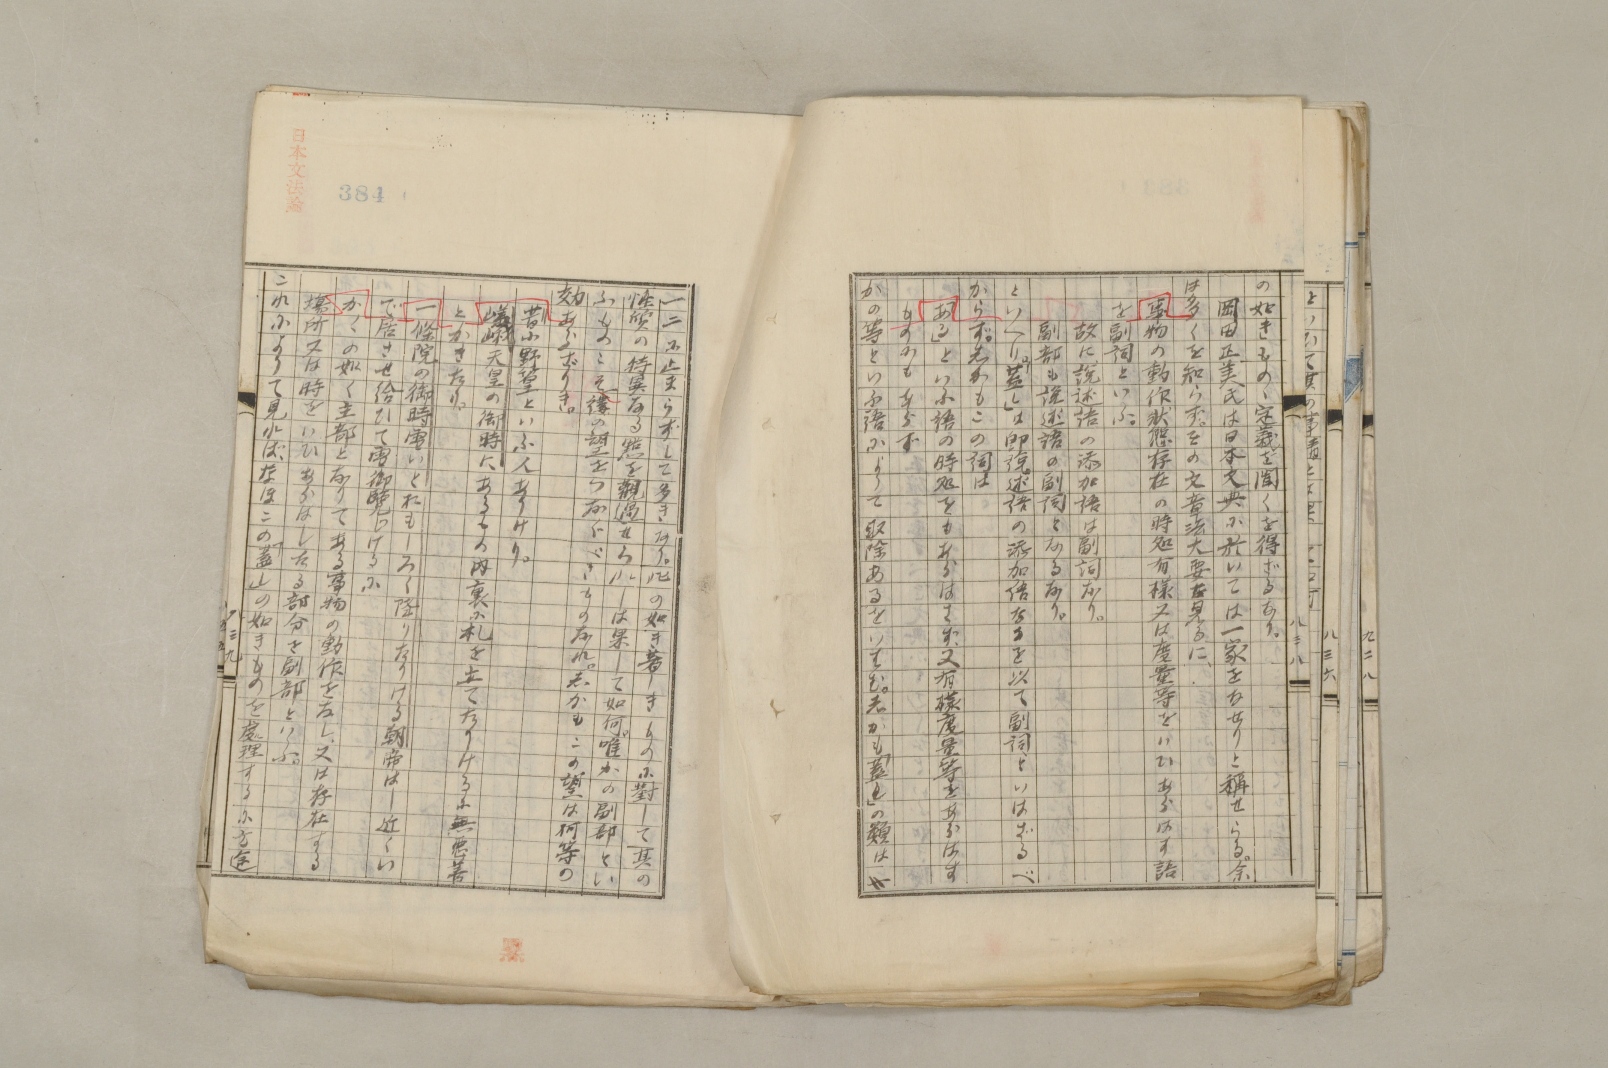 の如きもの、定義を聞くを得ざるなり。
岡田正美氏は日本文典に於いては一家をなせりと稱せらる。余
は多くを知らず。その文章法大要を見るに、
事物の動作狀態存在の時処有樣又は度量等をいひあらはす語
を副詞といふ。
故に説述語の添加語は副詞なり。
副部も説述語の副詞となるなり。
といへり。「蓋し」は即説述語の添加語なるを以て副詞といはざるべ
からず。しかもこの詞は
ある」といふ語の時処をもあらはさず、又有樣度量等をあらはす
ものにもあらず
かの等といふ語によりて取除あるをいはむ。しかも「蓋し」の類は
384
日本文法論
一二に止まらずして多きなり。此の如き著しきものに對して其の
性質の特異なる點を觀過せらるゝは果して如何。唯かの副部とい
ふものこそ僕の望をつなぐべきものなれ。しかもこの望は何等の
効あらざりき。
昔小野篁といふ人ありけり。
嵯峨天皇の御時にあるもの内裏に札を立てたりけるに無惡善
とかきたり。
一條院の御時雪いとおもしろく降りたりける朝帝はし近くい
で居させ給ひて雪御覽じけるに
かくの如く主部となりてある事物の動作をなし、又は存在する
場所又は時をいひあらはしたる部分を副部といふ。
これによりて見れば、なほこの「蓋し」の如きものを處理するに方途
八三九
八三八
八三六
九二八